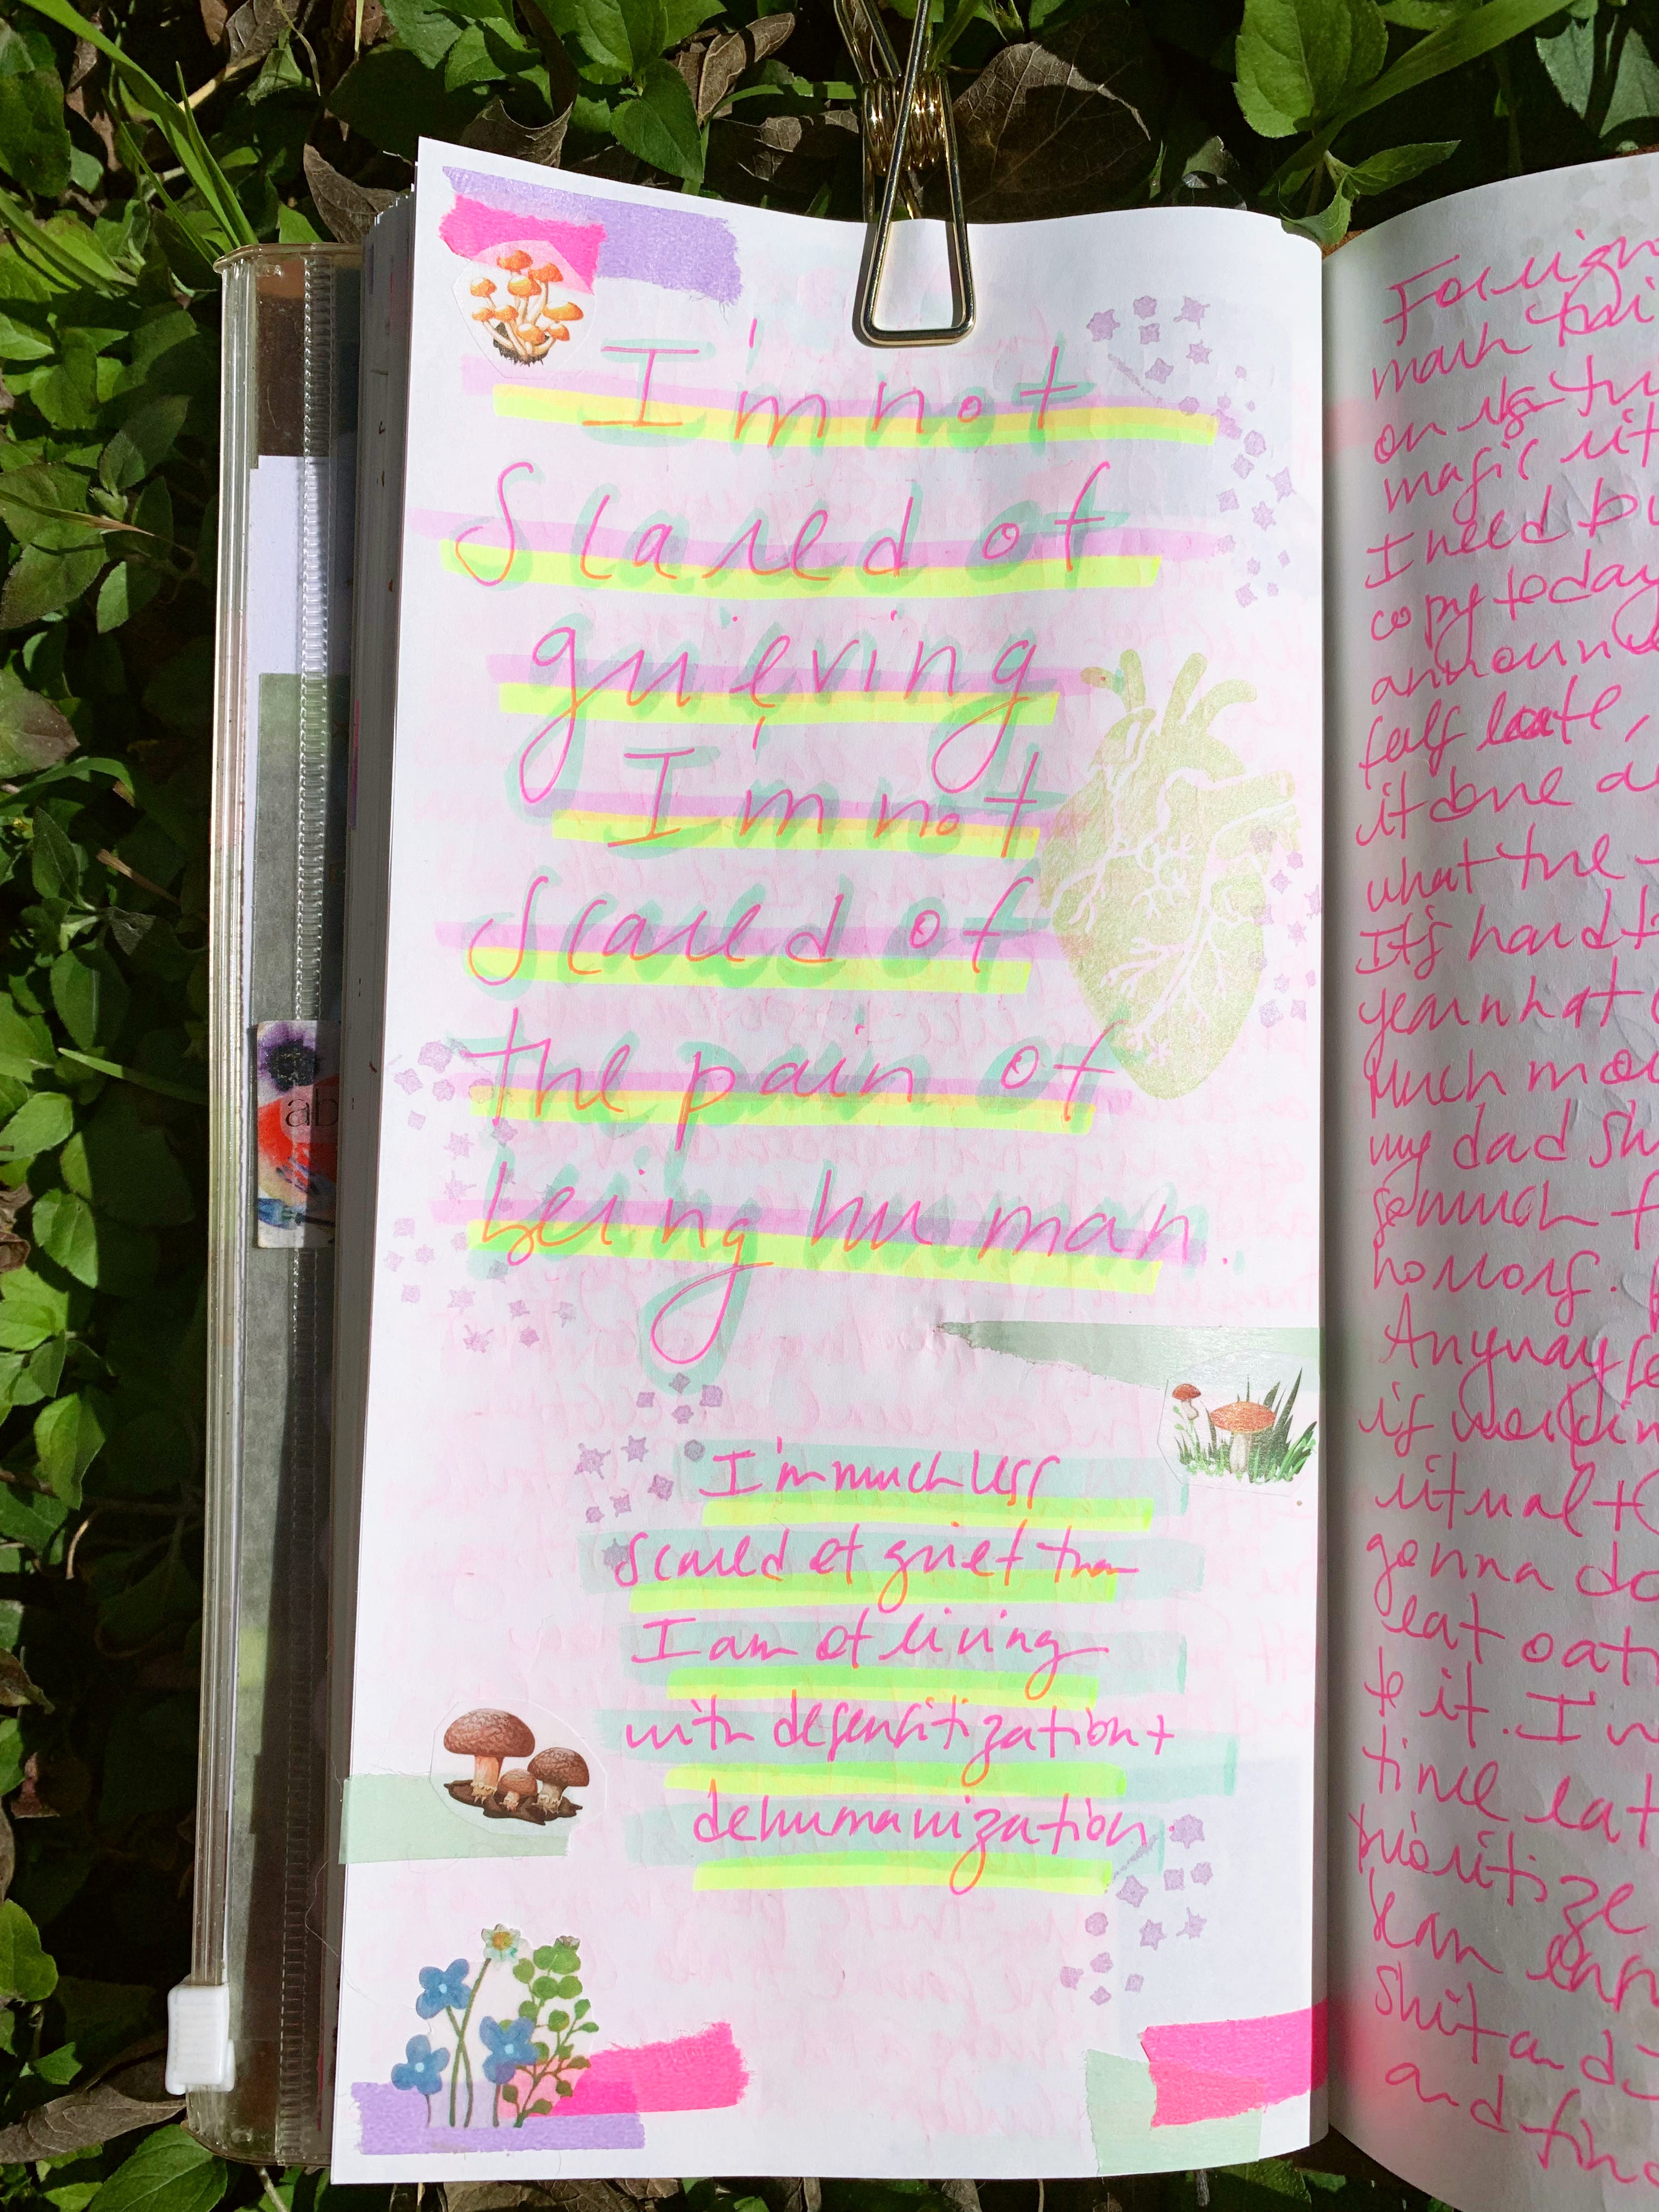 I'm not
Scared of
grieving
I'm not
Scared of
the pain of
being human.
I'm much less
scared of grief than
I am of living
with desensitization +
dehumanization.
ab
Foreign
mark
on its
magic
I need
copy today
announ
late,
it done
what the
It's hard
year
much
my dad
so much
horrors.
Anyway
if
ritual
gonna do
eat
to it. I
time eat
prioritize
can
shit and
and